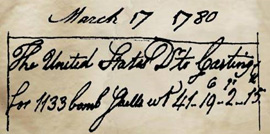 March 17 1780
The United States Dr to Casting
for 1133 bomb Shells wt 41-19-2-15